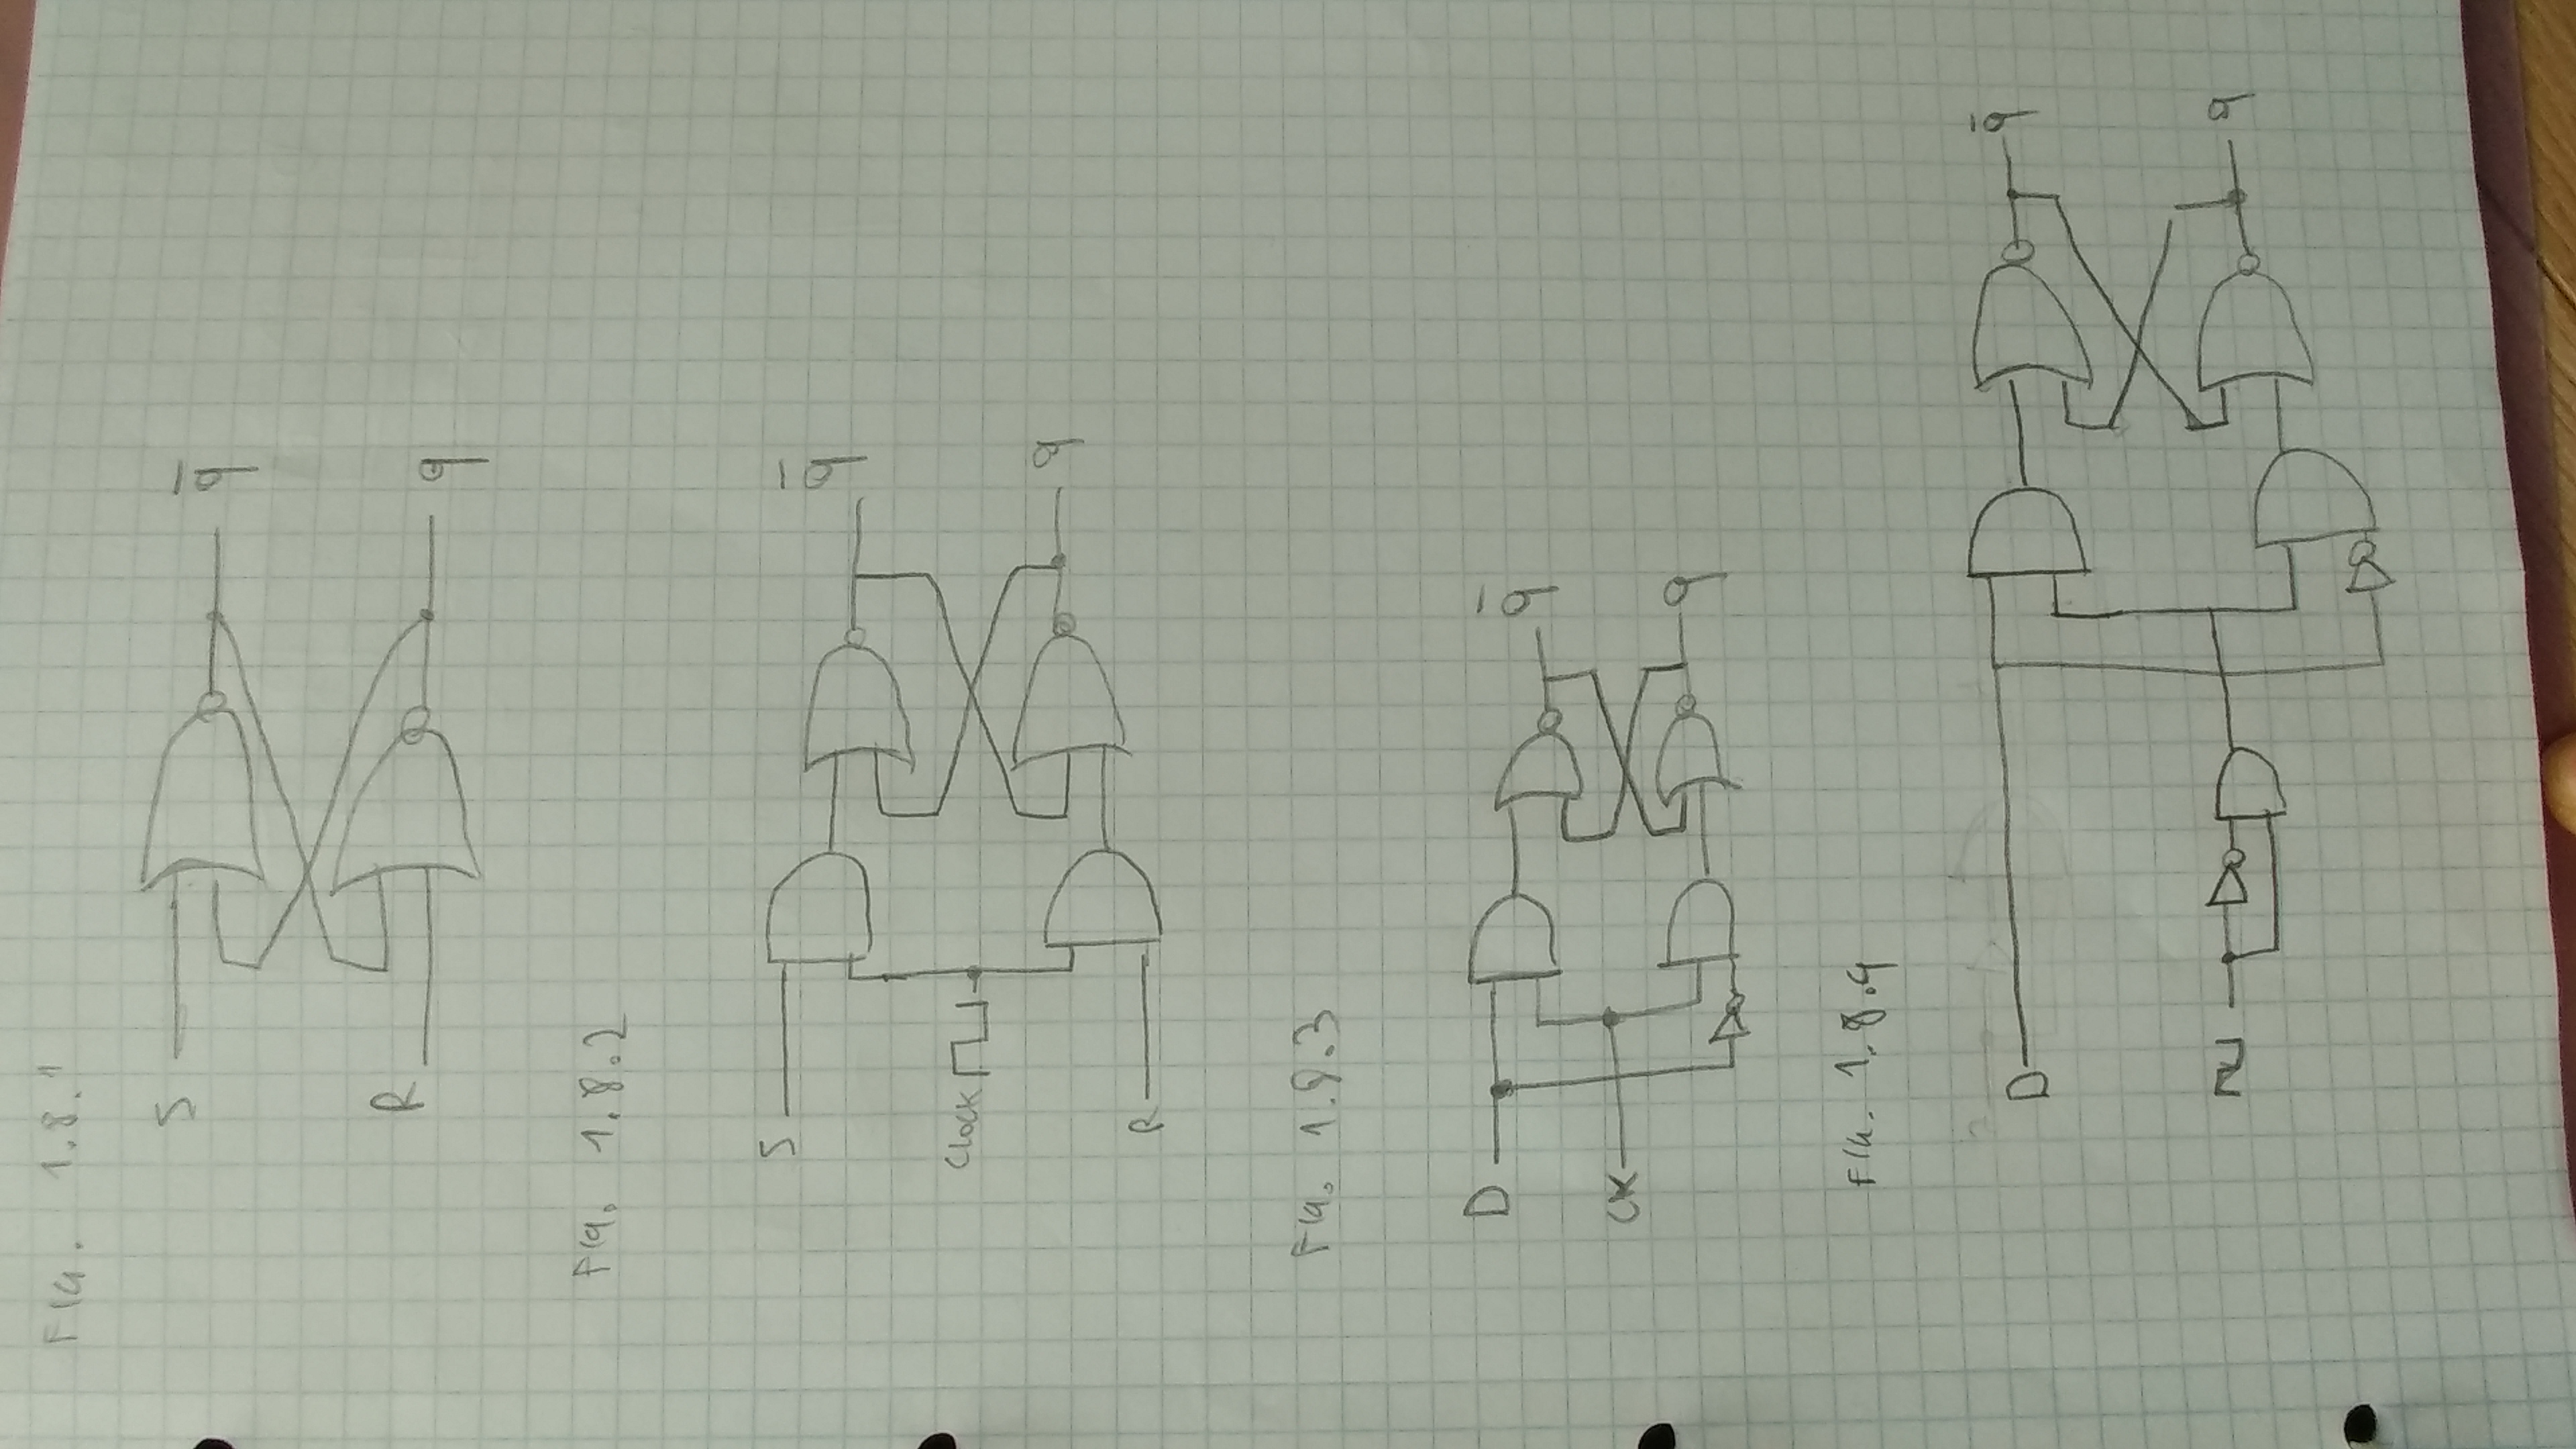 FIG. 1.8.1
S
q̄
R
q
FIG. 1.8.2
S
q̄
CLOCK
q
R
FIG. 1.8.3
D
q̄
CK
q
FIG. 1.8.4
D
q̄
q